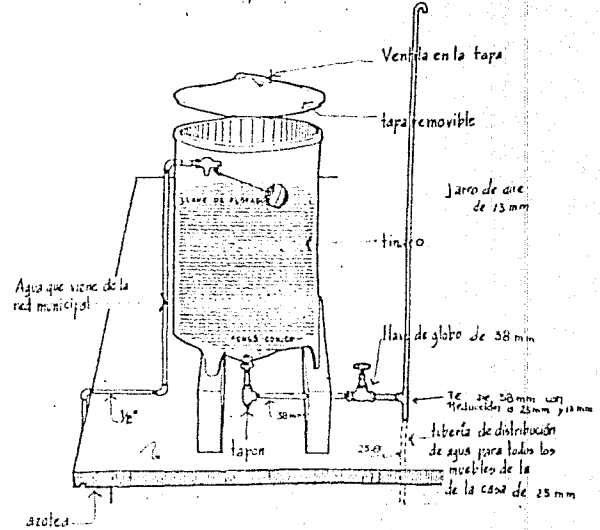 Ventila en la tapa
tapa removible
Jarro de aire
de 13 mm
LLAVE DE FLOTADOR
tinaco
Agua que viene de la
red municipal
FONDO CONICO
llave de globo de 38 mm
1/2"
38 mm
Te de 38 mm con
reducción a 25 mm y 13 mm
tapon
25
tubería de distribución
de agua para todos los
muebles de la
de la casa de 25 mm
azotea